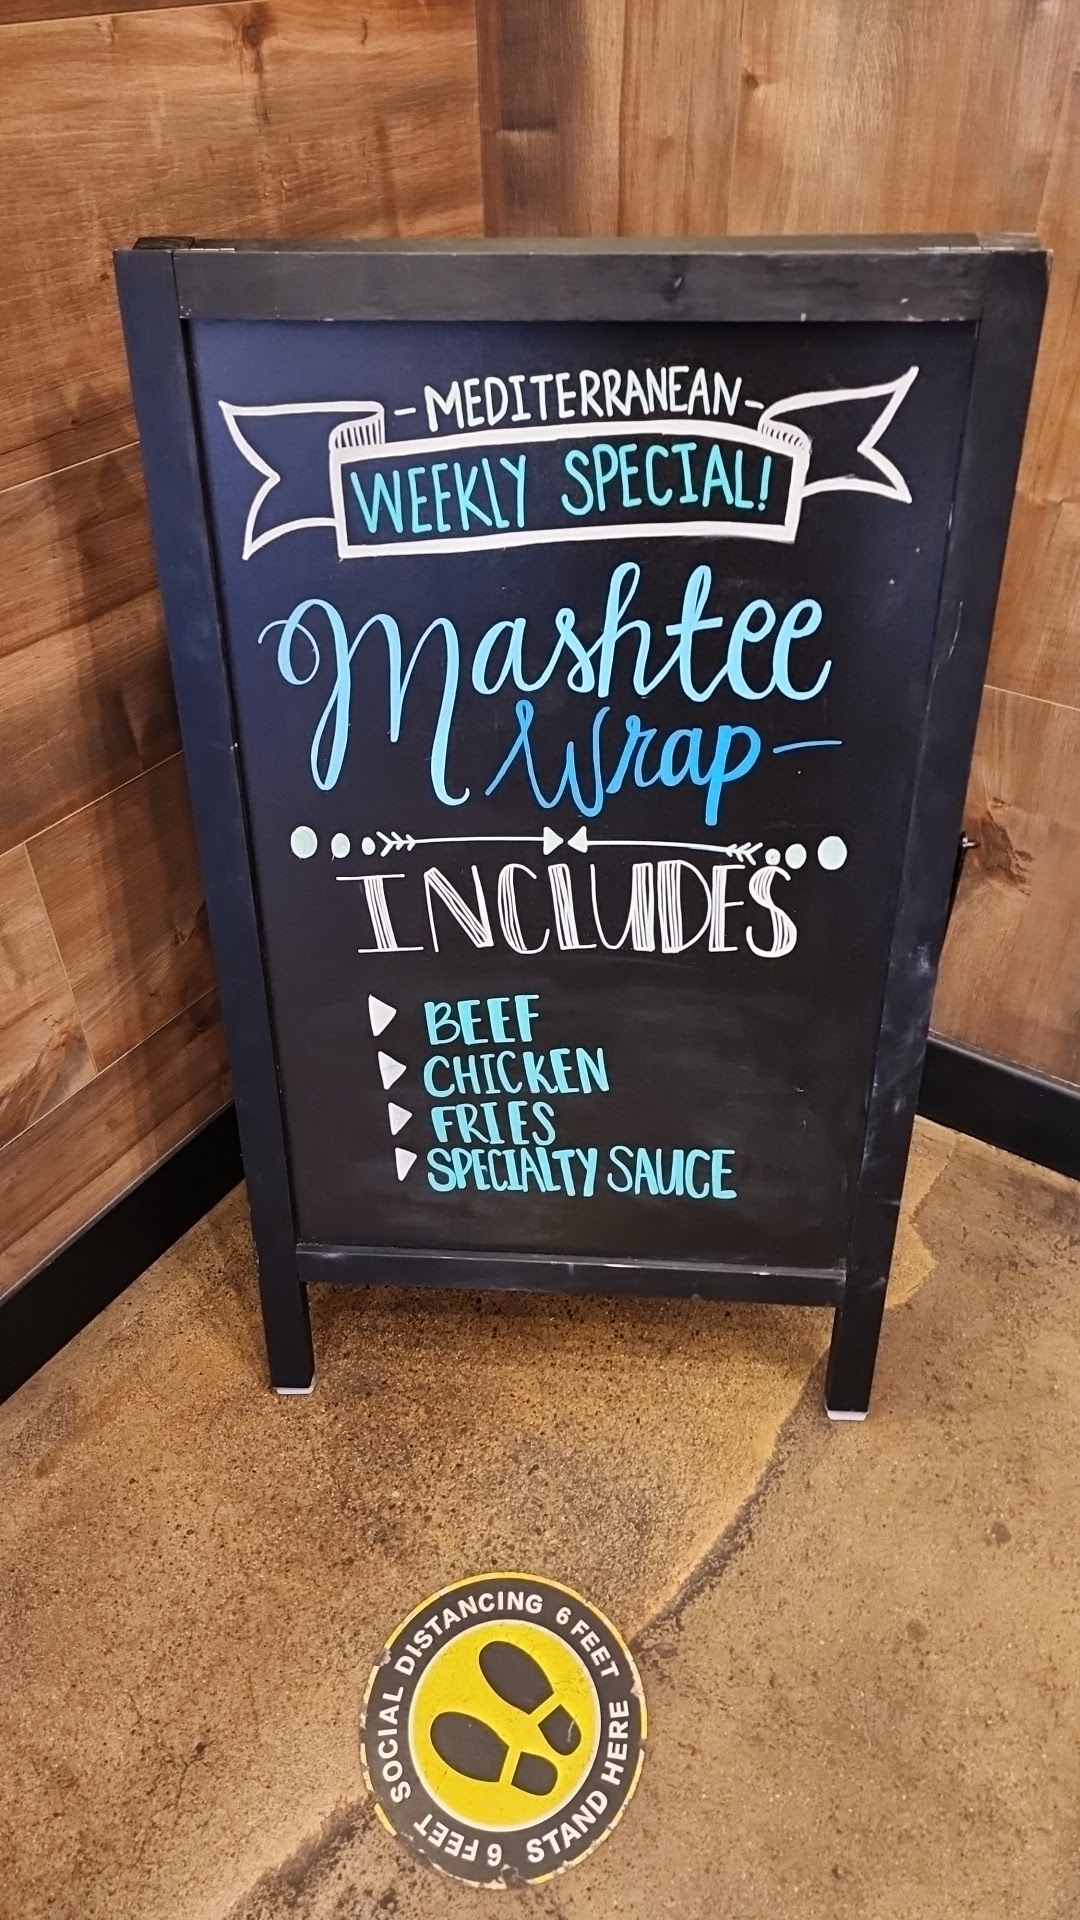 -MEDITERRANEAN-
WEEKLY SPECIAL!
Mashtee
Wrap-
INCLUDES
BEEF
CHICKEN
FRIES
SPECIALTY SAUCE
SOCIAL DISTANCING 6 FEET
STAND HERE
6 FEET